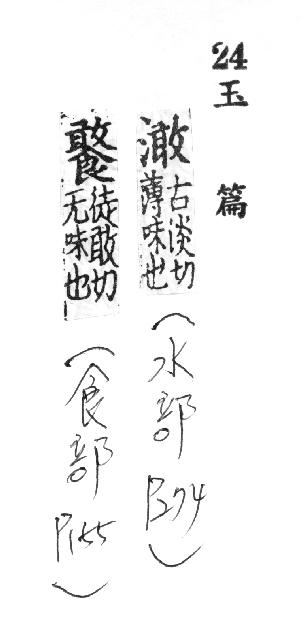 24 玉篇
澉 古淡切薄味也（水部 P274）
徒敢切无味也（食部 P155）